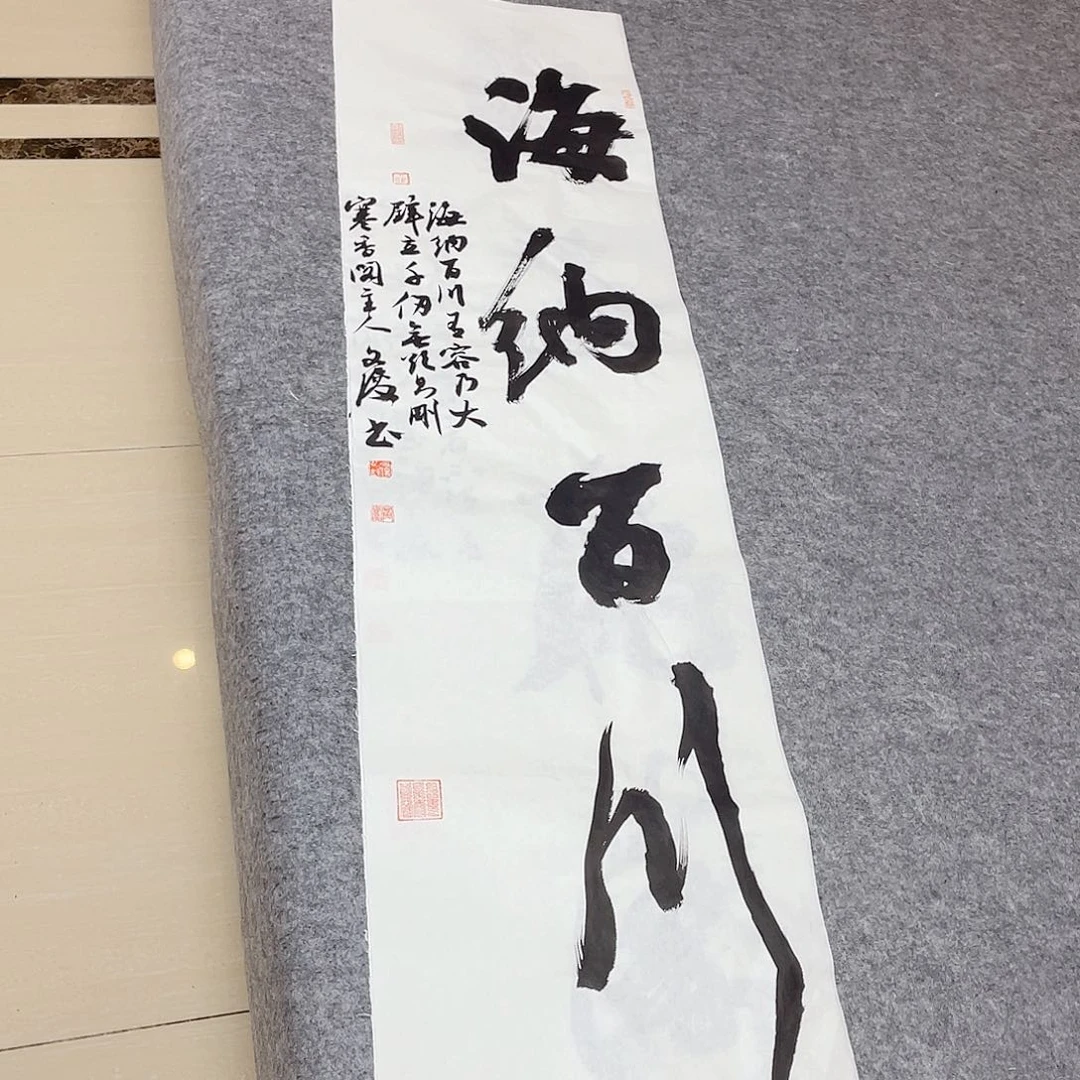 海纳百川
海纳百川有容乃大
壁立千仞无欲则刚
寒香阁主人文澄书